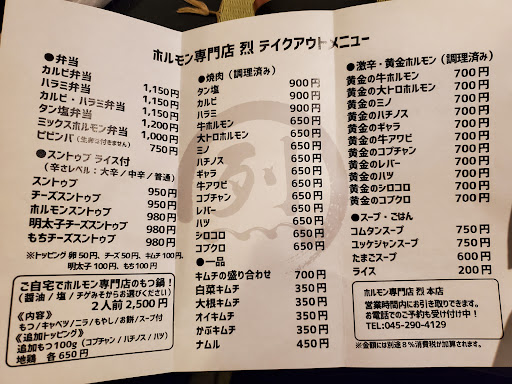 ホルモン専門店 烈 テイクアウトメニュー
●弁当
カルビ弁当 1,150円
ハラミ弁当 1,150円
カルビ・ハラミ弁当 1,150円
タン塩弁当 1,200円
ミックスホルモン弁当 1,000円
ビビンバ(生卵は付きません) 750円
●スントゥブ ライス付
(辛さレベル:大辛/中辛/普通)
スントゥブ 950円
チーズスントゥブ 950円
ホルモンスントゥブ 980円
明太子チーズスントゥブ 980円
もちチーズスントゥブ 980円
※トッピング 卵 50円、チーズ 50円、キムチ 100円、
明太子 100円、もち 100円
ご自宅でホルモン専門店のもつ鍋!
(醤油/塩/チゲみそからお選びください)
2人前 2,500円
《内容》
もつ/キャベツ/ニラ/もやし/お餅/スープ付
《追加トッピング》
追加もつ100g(コプチャン/ハチノス/ハツ)
地鶏 各650円
●焼肉(調理済み)
タン塩 900円
カルビ 900円
ハラミ 900円
牛ホルモン 650円
大トロホルモン 650円
ミノ 650円
ハチノス 650円
ギャラ 650円
牛アワビ 650円
コプチャン 650円
レバー 650円
ハツ 650円
シロコロ 650円
コブクロ 650円
●一品
キムチの盛り合わせ 700円
白菜キムチ 350円
大根キムチ 350円
オイキムチ 350円
かぶキムチ 350円
ナムル 450円
●激辛・黄金ホルモン(調理済み)
黄金の牛ホルモン 700円
黄金の大トロホルモン 700円
黄金のミノ 700円
黄金のハチノス 700円
黄金のギャラ 700円
黄金の牛アワビ 700円
黄金のコプチャン 700円
黄金のレバー 700円
黄金のハツ 700円
黄金のシロコロ 700円
黄金のコブクロ 700円
●スープ・ごはん
コムタンスープ 750円
ユッケジャンスープ 750円
たまごスープ 600円
ライス 200円
ホルモン専門店 烈 本店
営業時間内にお引き取りできます。
お電話でのご予約も受け付け中!
TEL:045-290-4129
※金額には別途8%消費税が加算されます。
烈